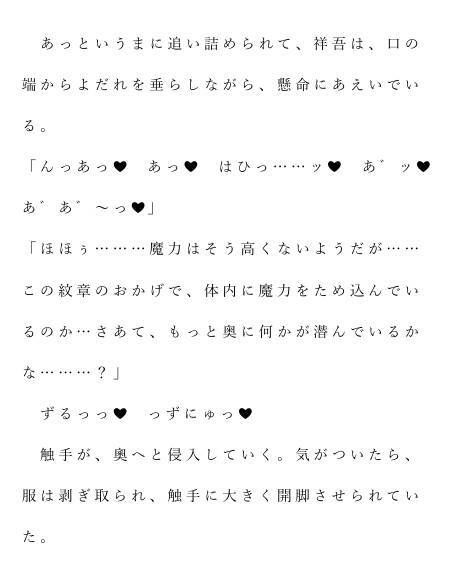 あっというまに追い詰められて、祥吾は、口の
端からよだれを垂らしながら、懸命にあえいでい
る。
「んっあっ♥　あっ♥　はひっ……ッ♥　あ゛ッ♥
あ゛あ゛～っ♥」
「ほほぅ………魔力はそう高くないようだが……
この紋章のおかげで、体内に魔力をため込んでい
るのか…さあて、もっと奥に何かが潜んでいるか
な………？」
　ずるっっ♥　っずにゅっ♥
　触手が、奥へと侵入していく。気がついたら、
服は剥ぎ取られ、触手に大きく開脚させられてい
た。